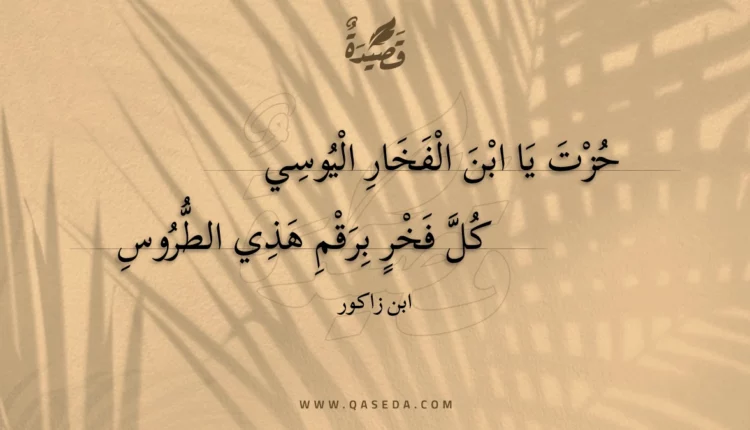 قَصِيدَةٌ
حُزْتَ يَا ابْنَ الْفَخَارِ الْيُوسِي
كُلَّ فَخْرٍ بِرَقْمِ هَذِي الطُّرُوسِ
ابن زاكور
WWW.QASEDA.COM